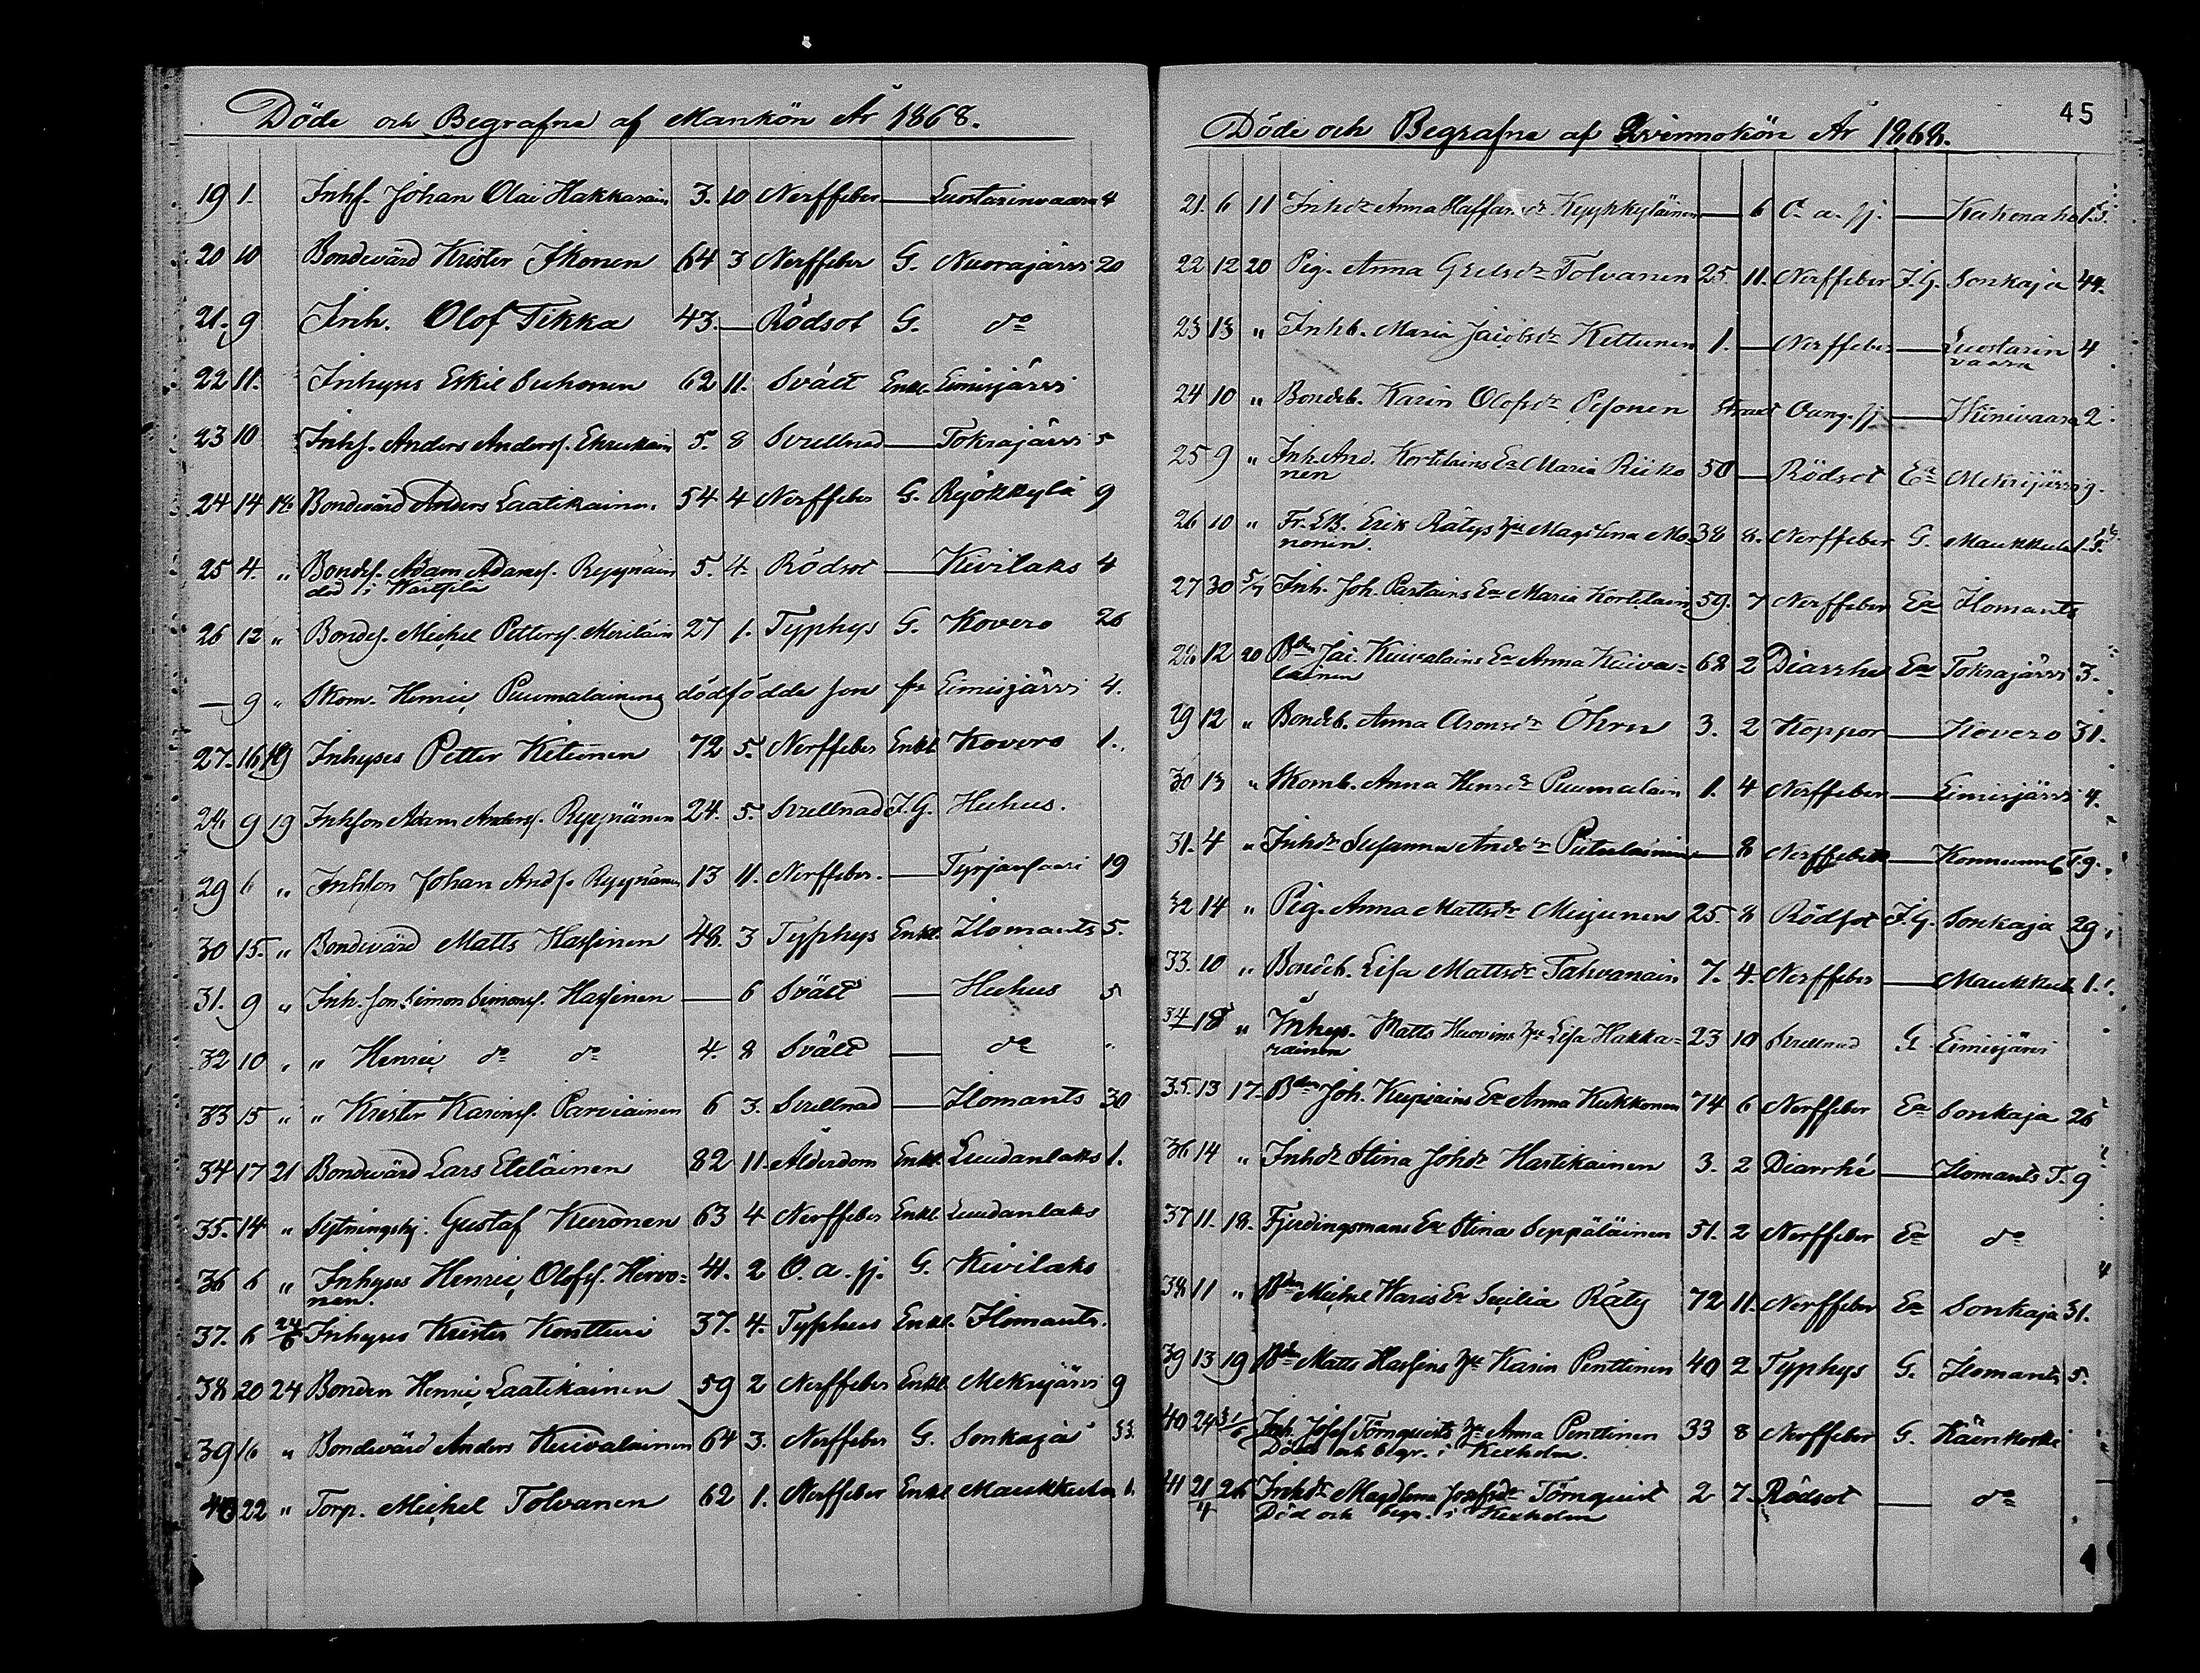 Döde och Begrafne af Mankön År 1868.
19 1. Inhs. Johan Olai Hakkarain 3. 10 Nerffeber — Luostarinvaara 4
20 10 Bondevärd Krister Ikonen 64 3 Nerffeber G. Nuorajärvi 20
21. 9 Inh. Olof Tikka 43. — Rödsot G. do
22 11. Inhyses Eskil Suhonen 62 11. Svält Enkl. Eimisjärvi
23 10 Inhs. Anders Anderss. 5. 8 Svullnad — Tokrajärvi 5
24 14 14 Bondevärd Anders Laatikainen 54 4 Nerffeber G. Ryökkylä 9
25 4. " Bondes. Adam Adamss. Ryynäin 5. 4. Rödsot — Kivilaks 4
död i Wärtsilä
26 12 " Bondes. Michel Petterss. Meriläin 27 1. Typhys G. Kovero 26
— 9 " Skom. Henric Puumalainens dödfödde son fr Eimisjärvi 4.
27. 16 19 Inhyses Petter Ketunen 72 5. Nerffeber Enkl. Kovero 1.
28 9 19 Inhson Adam Anderss. Ryynänen 24. 5. Svullnad I.G. Huhus.
29 6 " Inhson Johan Ands. Ryynänen 13 11. Nerffeber. — Tyrjänsaari 19
30 15. " Bondevärd Matts Hassinen 48. 3 Typhys Enkl. Ilomants 5.
31. 9 " Inh. son Simon Simonss. Hassinen — 6 Svält — Huhus 5
32 10 " " Henric do do 4. 8 Svält — do "
33 15 " " Krister Karinss. Parviainen 6 3. Svullnad — Ilomants 30
34 17 21 Bondevärd Lars Eteläinen 82 11. Ålderdom Enkl. Luudanlaks 1.
35. 14 " Sytningshj. Gustaf Kuronen 63 4 Nerffeber Enkl Luudanlaks
36 6 " Inhyses Henric Olofss. Hirvo- 41. 2 O. a. sj. G. Kivilaks
nen.
37. 6 24/6 Inhyses Krister Kontturi 37. 4. Typhus Enkl. Ilomants.
38 20 24 Bonden Henric Laatikainen 59 2 Nerffeber Enkl. Mekrijärvi 9
39 16 " Bondevärd Anders Kuivalainen 64 3. Nerffeber G. Sonkaja 33.
40 22 " Torp. Michel Tolvanen 62 1. Nerffeber Enkl Maukkula 1.
45
Döde och Begrafne af Qvinnokön År 1868.
21. 6 11 Inhdr Anna Staffansdr Kypykyläinen — 6 O. a. sj. — 1.
22 12 20 Pig. Anna Grelsdr Tolvanen 25. 11. Nerffeber I.G. Sonkaja 44.
23 13 " Inhb. Maria Jacobsdr Kettunen 1. — Nerffeber — Luostarin 4
vaara
24 10 " Bondeb. Karin Olofsdr Pesonen straxt Oang. sj — Hiinivaara 2
25 9 " Inh. And. Kortelains Ea Maria Riiko 50 — Rödsot Ea Mekrijärvi 9.
nen
26 10 " Fr. LB. Erik Rätys hu Magdlena Mo- 38 8. Nerffeber G. Maukkula 1.
nonen.
27 30 5/7 Inh. Joh. Partains Ea Maria Kortelain 59. 7 Nerffeber Ea Ilomants
28 12 20 Bden Jac. Kuivalains Ea Anna Kuiva- 68 2 Diarrhe Ea Tokrajärvi 3.
lainen
29 12 " Bondeb. Anna Aronsdr Öhrn 3. 2 Koppor — Kovero 31.
30 13 " Skomb. Anna Henrdr Puumalain 1. 4 Nerffeber — Eimisjärvi 4.
31. 4 " Inhdr Susanna Andsdr — 8 Nerffeber — 9.
32 14 " Pig. Anna Mattsdr Miujunen 25 8 Rödsot I.G. Sonkaja 29
33. 10 " Bondeb. Lisa Mattsdr Tahvanain 7. 4. Nerffeber — Maukkula 1.
34 18 " Inhys. Matts Huovins hu Lisa Hakka- 23 10 Svullnad G. Eimisjärvi
rainen
35. 13 17. Bden Joh. Kupiains Ea Anna Kukkonen 74 6 Nerffeber Ea Sonkaja 26
36 14 " Inhdr Stina Johdr Hartikainen 3. 2 Diarrhé — Ilomants T. 9
37 11. 18. Fjerdingsmans Ea Stina Seppäläinen 51. 2 Nerffeber Ea do
38 11 " Bden Michel Haris Ea Secilia Räty 72 11. Nerffeber Ea Sonkaja 31.
39 13 19 Bden Matts Hassins hu Karin Penttinen 40 2 Typhys G. Ilomants 5.
40 24 3 1/5 Inh. Josef Törnqvists hu Anna Penttinen 33 8 Nerffeber G. Käenkoski
Död och begr. i Kexholm.
41 21/4 26 Inhdr Magdlena Josefsdr Törnquist 2 7. Rödsot — do
Död och begr. i Kexholm